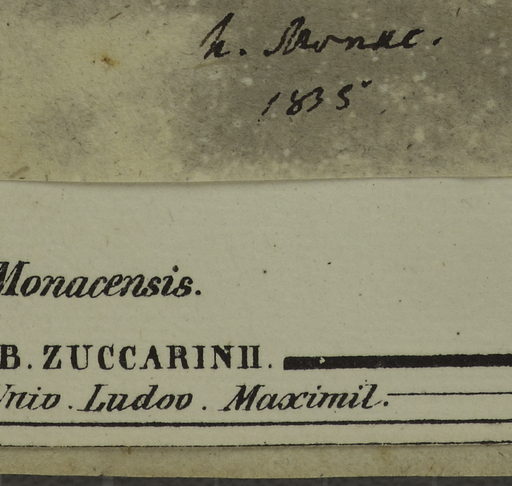 h. Monac.
1835
Monacensis.
B. ZUCCARINII.
Univ. Ludov. Maximil.